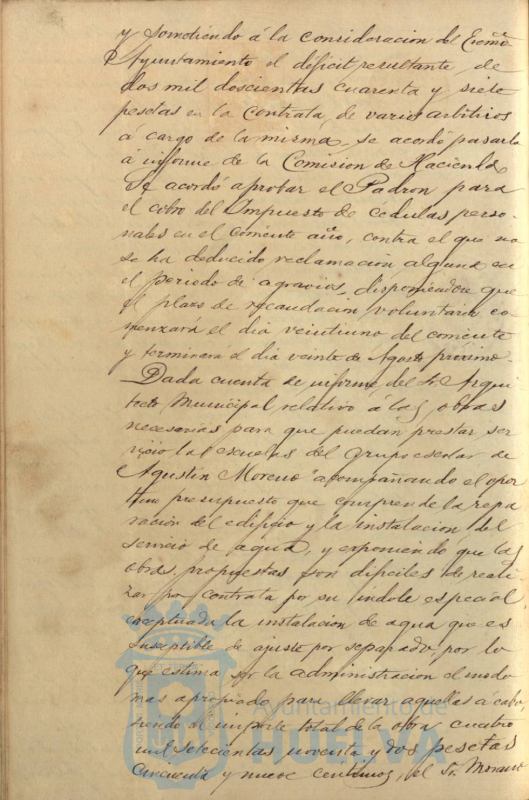 y sometiendo á la consideracion del Excmo
Ayuntamiento el déficit resultante, de
dos mil doscientas cuarenta y siete
pesetas en la contrata, de varios arbitrios
á cargo de la misma, se acordó pasarla
á informe de la Comision de Hacienda
Se acordó aprobar el Padron para
el cobro del Impuesto de cédulas perso-
nales en el corriente año, contra el que no
se ha deducido reclamacion alguna en
el periodo de agravios, disponiendose que
el plazo de recaudacion voluntaria co-
menzará el dia veintiuno del corriente
y terminará el dia veinte de Agosto próximo-
Dada cuenta de informe, del Sr. Arqui
tecto Municipal relativo á las obras
necesarias para que puedan prestar ser
vicio las escuelas del Grupo escolar de
"Agustin Moreno" acompañando el opor
tuno presupuesto que comprende la repa
racion del edificio y la instalacion del
servicio de agua, y exponiendo que las
obras propuestas son dificiles de reali
zar por contrata por su indole especial
exceptuada la instalacion de agua que es
susceptible de ajuste por separado, por lo
que estima ser la administracion el modo
mas apropiado para llevar aquellas á cabo
siendo el importe total de la obra cuatro
mil setecientas noventa y dos pesetas
cincuenta y nueve centimos, el Sr. Moreno
Ayuntamiento de
HUELVA